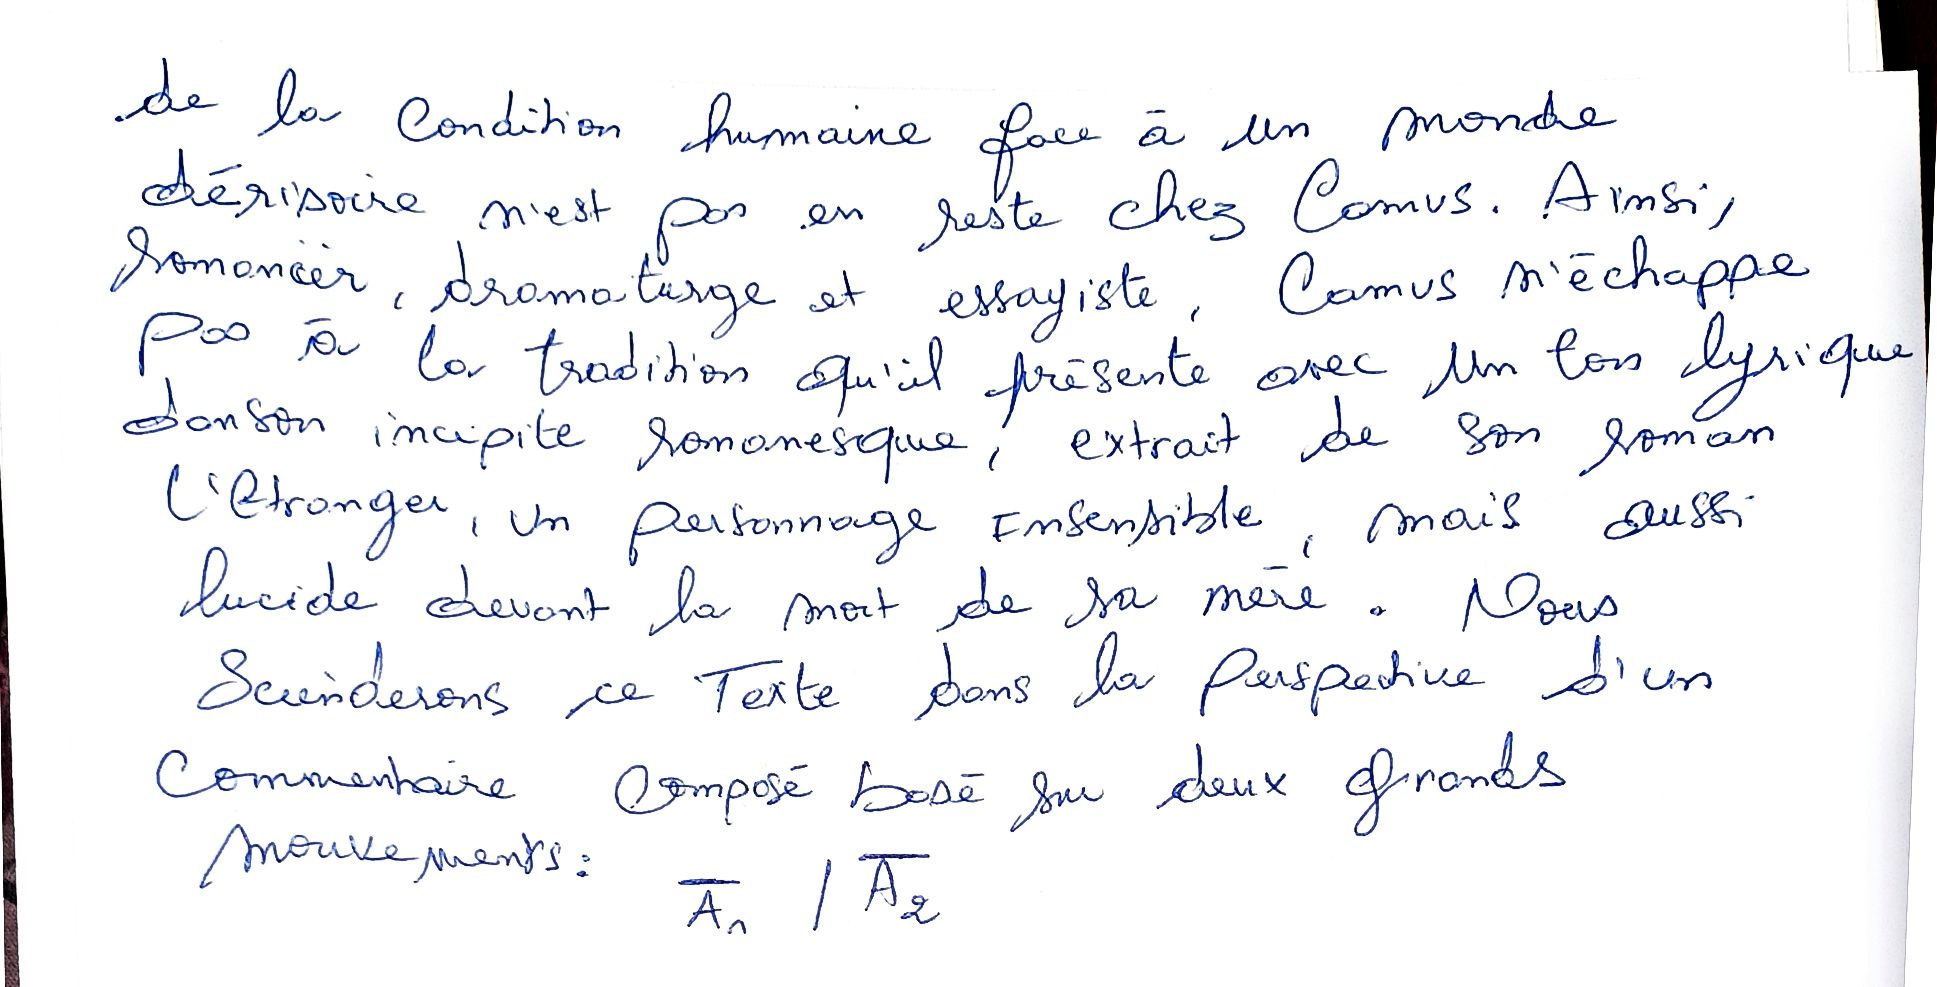 de la Condition humaine face à un monde
dérisoire n'est pas en reste chez Camus. Ainsi,
romancier, dramaturge et essayiste, Camus n'échappe
pas à la tradition qu'il présente avec un ton lyrique
dans son incipite romanesque, extrait de son roman
l'Etranger, un personnage Insensible, mais aussi
lucide devant la mort de sa mère. Nous
Scinderons ce Texte dans la Perspective d'un
Commentaire Composé basé sur deux grands
mouvements:
A1 / A2